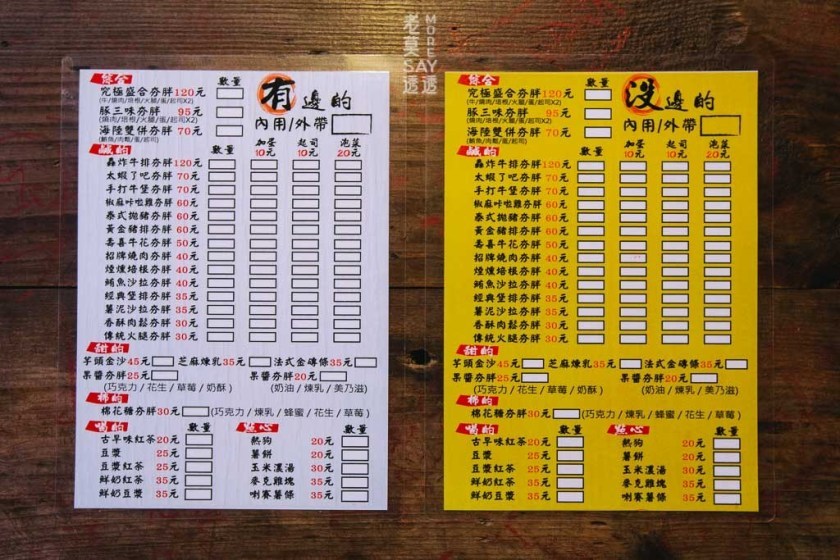 老莫透透
MORE
SAY
綜合 數量
究極盛合夯胖120元
(牛/燒肉/培根/火腿/蛋/起司X2)
豚三味夯胖 95元
(燒肉/培根/火腿/蛋/起司X2)
海陸雙併夯胖 70元
(鮪魚/肉鬆/蛋/起司)
有邊的
內用/外帶
鹹的 數量 加蛋10元 起司10元 泡菜20元
轟炸牛排夯胖120元
太蝦了吧夯胖 70元
手打牛堡夯胖 70元
椒麻咔啦雞夯胖 60元
泰式拋豬夯胖 60元
黃金豬排夯胖 60元
壽喜牛花夯胖 50元
招牌燒肉夯胖 40元
煙燻培根夯胖 40元
鮪魚沙拉夯胖 40元
經典堡排夯胖 35元
薯泥沙拉夯胖 35元
香酥肉鬆夯胖 30元
傳統火腿夯胖 30元
甜的
芋頭金沙45元 芝麻煉乳35元 法式金磚條35元
果醬夯胖25元 果醬夯胖20元
(巧克力/花生/草莓/奶酥) (奶油/煉乳/美乃滋)
棉的
棉花糖夯胖30元 (巧克力/煉乳/蜂蜜/花生/草莓)
喝的 數量 點心 數量
古早味紅茶20元 熱狗 20元
豆漿 25元 薯餅 20元
豆漿紅茶 25元 玉米濃湯 30元
鮮奶紅茶 35元 麥克雞塊 35元
鮮奶豆漿 35元 唰賽薯條 35元
綜合 數量
究極盛合夯胖120元
(牛/燒肉/培根/火腿/蛋/起司X2)
豚三味夯胖 95元
(燒肉/培根/火腿/蛋/起司X2)
海陸雙併夯胖 70元
(鮪魚/肉鬆/蛋/起司)
沒邊的
內用/外帶
鹹的 數量 加蛋10元 起司10元 泡菜20元
轟炸牛排夯胖120元
太蝦了吧夯胖 70元
手打牛堡夯胖 70元
椒麻咔啦雞夯胖 60元
泰式拋豬夯胖 60元
黃金豬排夯胖 60元
壽喜牛花夯胖 50元
招牌燒肉夯胖 40元
煙燻培根夯胖 40元
鮪魚沙拉夯胖 40元
經典堡排夯胖 35元
薯泥沙拉夯胖 35元
香酥肉鬆夯胖 30元
傳統火腿夯胖 30元
甜的
芋頭金沙45元 芝麻煉乳35元 法式金磚條35元
果醬夯胖25元 果醬夯胖20元
(巧克力/花生/草莓/奶酥) (奶油/煉乳/美乃滋)
棉的
棉花糖夯胖30元 (巧克力/煉乳/蜂蜜/花生/草莓)
喝的 數量 點心 數量
古早味紅茶20元 熱狗 20元
豆漿 25元 薯餅 20元
豆漿紅茶 25元 玉米濃湯 30元
鮮奶紅茶 35元 麥克雞塊 35元
鮮奶豆漿 35元 唰賽薯條 35元